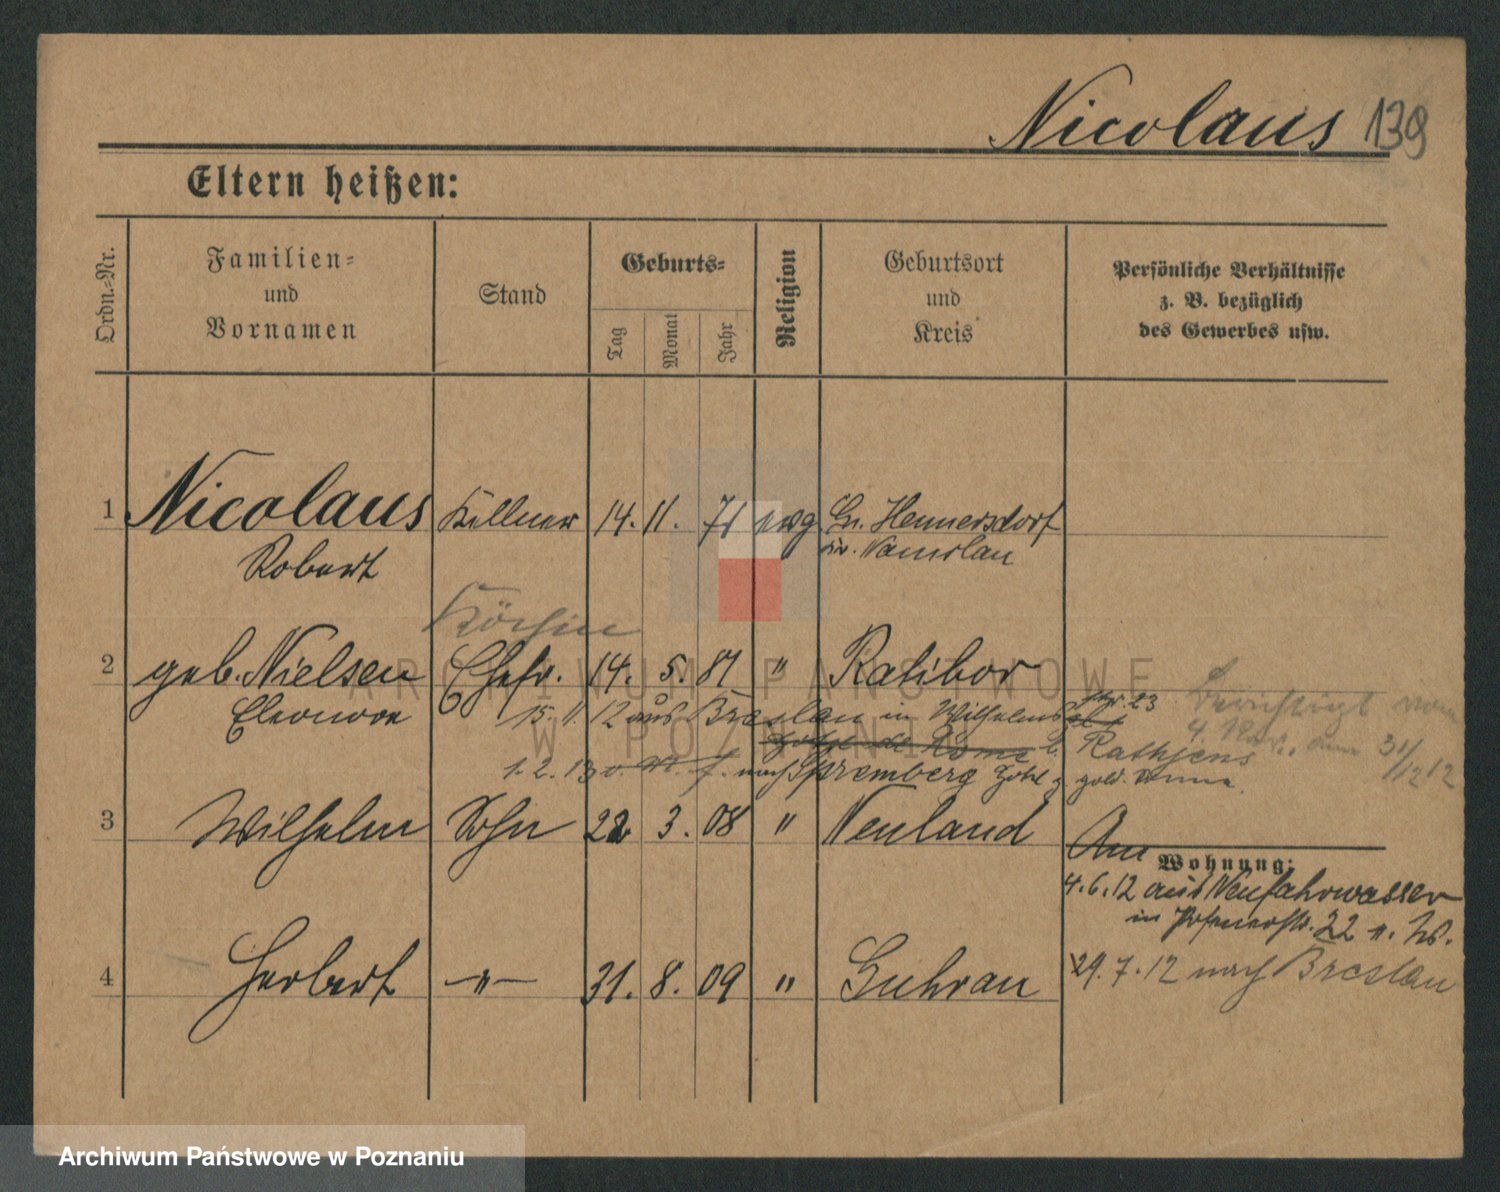 Nicolaus 139
Eltern heißen:
Ordn.-Nr.
Familien-
und
Vornamen
Stand
Geburts-
Tag
Monat
Jahr
Religion
Geburtsort
und
Kreis
Persönliche Verhältnisse
z. B. bezüglich
des Gewerbes usw.
1 Nicolaus Kellner 14. 11. 71 evg Gr. Hennersdorf
Robert Kr. Namslau
Köchin
2 geb. Nielsen Ehefr. 14. 5. 81 " Ratibor
Eleonore 15. 11. 12 aus Breslau in Wilhelmstr. 23
Hotel de Rome b. Rathjens
1. 2. 13 nach Spremberg Hotel z gold.
3 Wilhelm Sohn 22 3. 08 " Neuland
Am
Wohnung:
4. 6. 12 aus Neufahrwasser
in Posenerstr. 22
4 Herbert -"- 31. 8. 09 " Guhrau
29. 7. 12 nach Breslau
ARCHIWUM PAŃSTWOWE
W POZNANIU
Archiwum Państwowe w Poznaniu